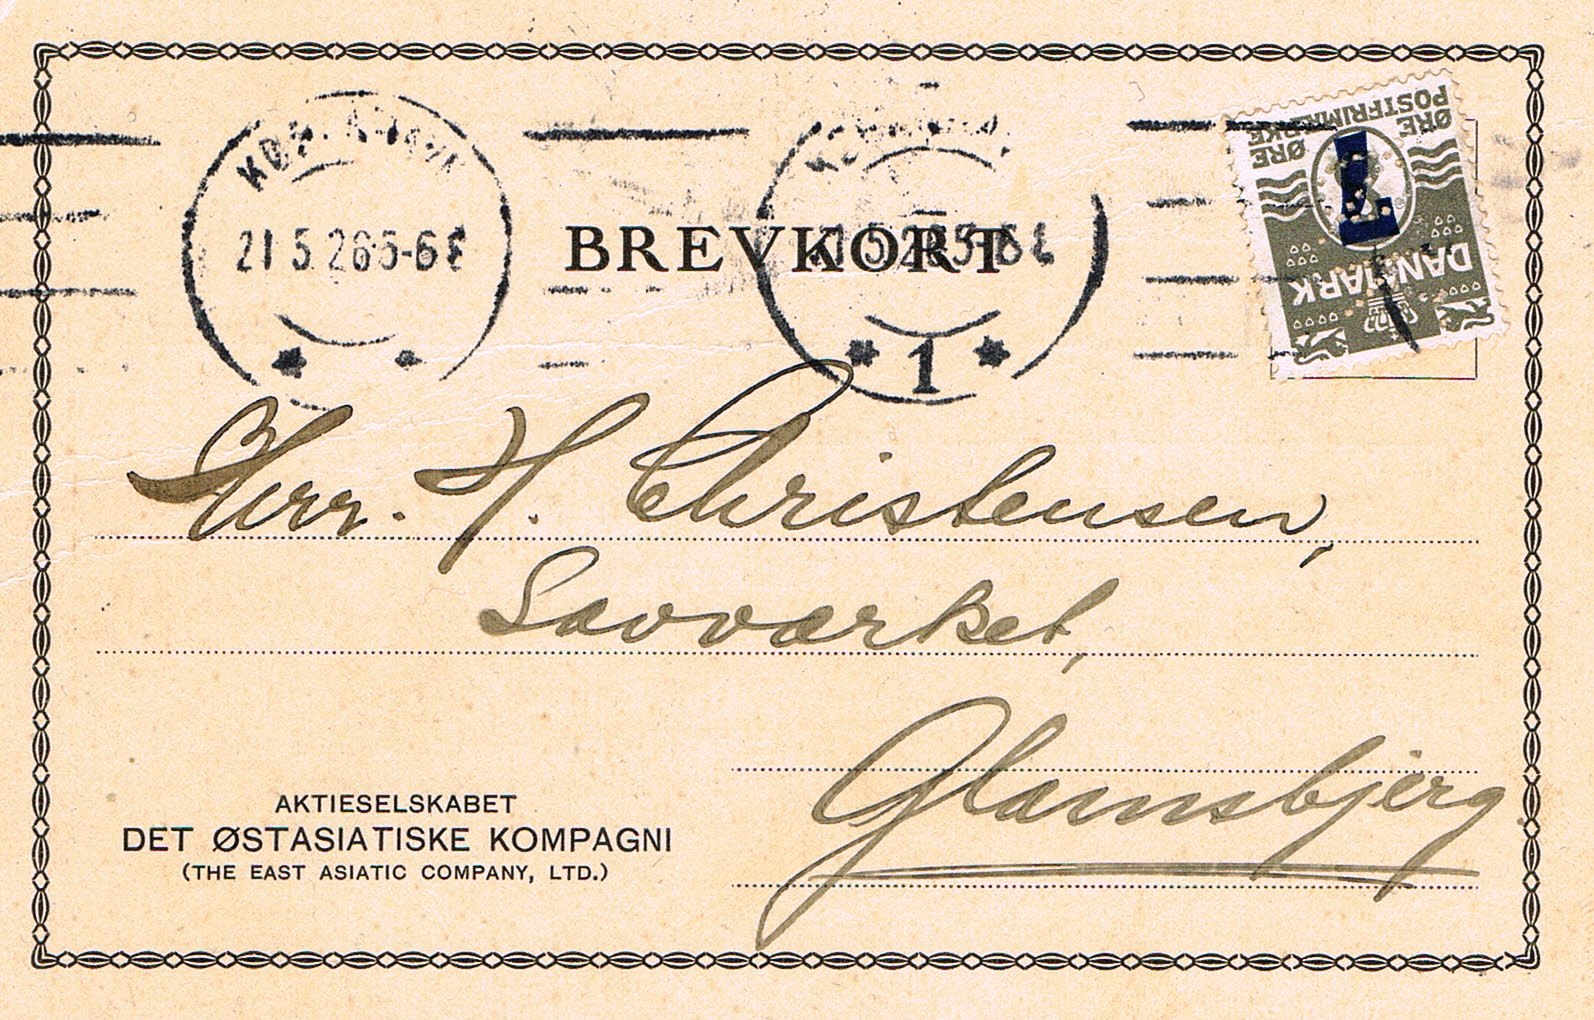 21 5 26 5-6 E
BREVKORT
1
ØRE ØRE
POSTFRIMÆRKE
7
DANMARK
Hrr. H. Christensen,
Savværket,
Glamsbjerg
AKTIESELSKABET
DET ØSTASIATISKE KOMPAGNI
(THE EAST ASIATIC COMPANY, LTD.)